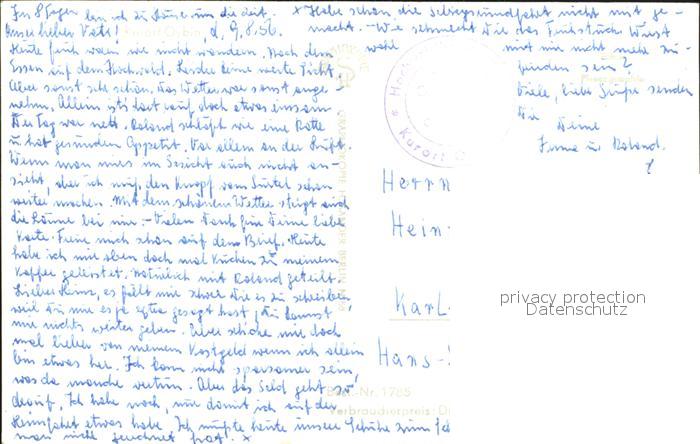 In 8 Tagen bin ich zu Hause um die Zeit.
Unser lieber Vati! d. 9.8.56.
Heute früh waren wir nicht wandern. Nach dem
Essen auf dem Hochwald. Leider keine weite Sicht.
Aber sonst sehr schön. Das Wetter war sonst ange-
nehm. Allein ist's dort auf doch etwas einsam
Der Tag war nett. Roland schläft wie eine Ratte
u. hat gesunden Appetit. Vor allem an der Luft.
Wenn man mir's im Gesicht auch nicht an-
sieht, aber ich muß den Knopf vom Gürtel schon
weiter machen. Mit dem schönen Wetter steigt auch
die Laune bei mir. - Vielen Dank für Deine liebe
Karte. Freue mich schon auf den Brief. Heute
habe ich mir eben doch mal Kuchen zu meinem
Kaffee geleistet. Natürlich mit Roland geteilt.
Lieber Heinz, es fällt mir schwer Dir es zu schreiben,
weil Du mir es ja gesagt hast, Du kannst
mir nichts weiter geben. Aber schicke mir doch
mal lieber von meinem Kostgeld wenn ich allein
bin etwas her. Ich kann nicht sparsamer sein,
was da manche vertun. Aber das Geld geht so
drauf. Ich habe noch, nur damit ich auf der
Heimfahrt etwas habe. Ich mußte heute unsere Schuhe zum
man nicht gerechnet hat. x
x Habe schon die Gebirgsrundfahrt nicht mit ge-
macht. - Wie schmeckt Dir das Frühstück? Wirst
wohl mit mir nicht mehr zu-
frieden sein?
Viele, liebe Grüße senden
Dir
Deine
Irma u. Roland.
Kurort O
Herrn
Hein
Karl
Hans-
Best.-Nr. 1785
Verbraucherpreis: D
privacy protection
Datenschutz